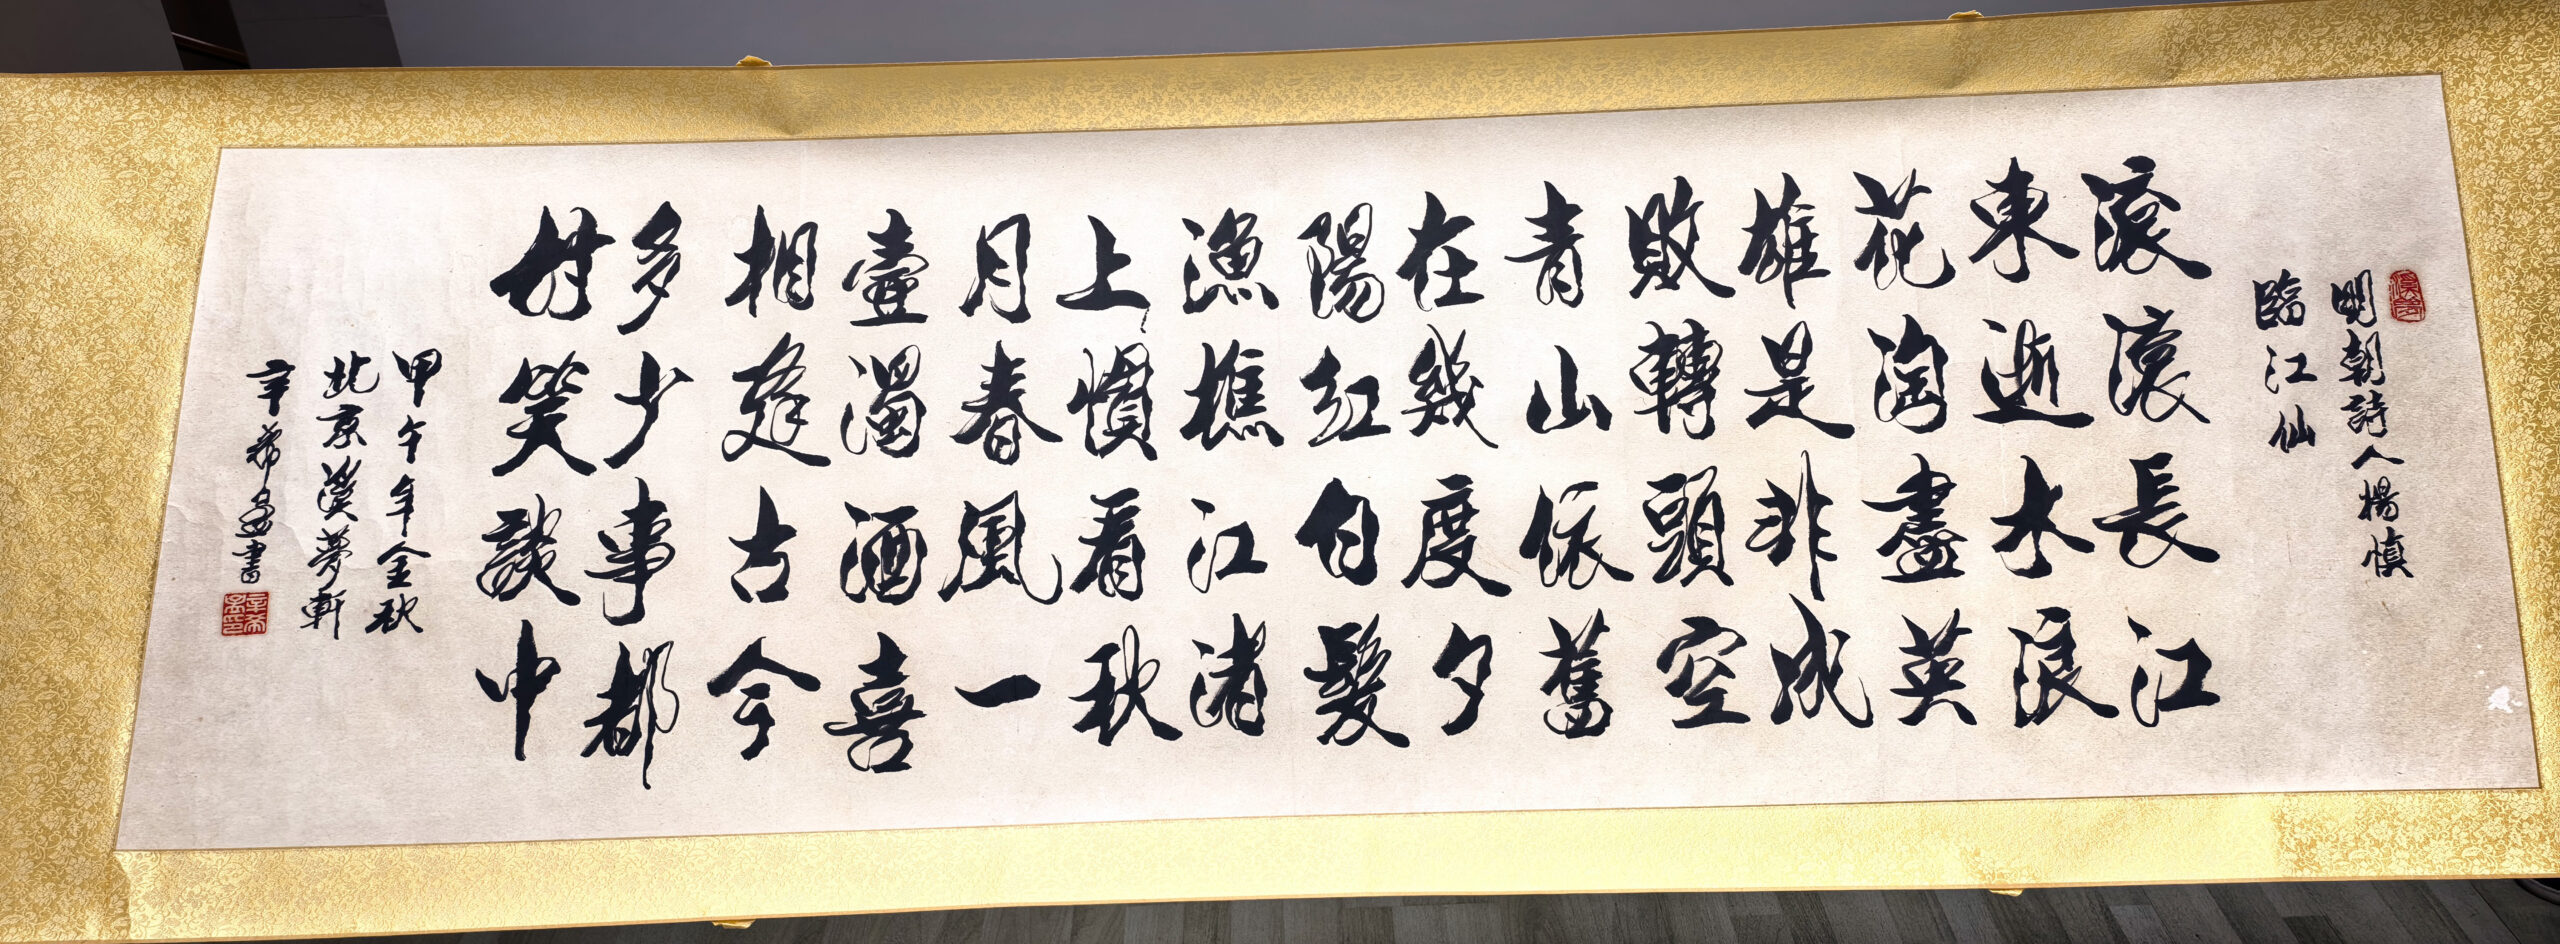 明朝詩人楊慎
臨江仙
滚滚長江
東逝水浪
花淘盡英
雄是非成
敗轉頭空
青山依舊
在幾度夕
陽紅白髮
漁樵江渚
上慣看秋
月春風一
壺濁酒喜
相逢古今
多少事都
付笑談中
甲午年金秋
北京漢夢軒
辛希孟書
辛希孟印